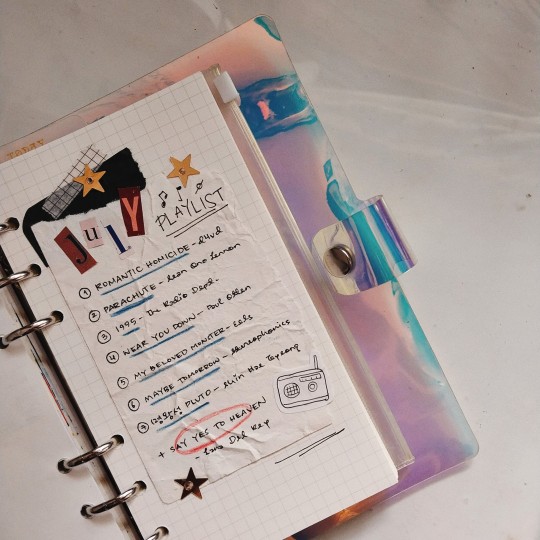 July
PLAYLIST
1 ROMANTIC HOMICIDE - d4vd
2 PARACHUTE - Sean Ono Lennon
3 1995 - The Radio Dept.
4 WEAR YOU DOWN - Paul Otten
5 MY BELOVED MONSTER - eels
6 MAYBE TOMORROW - stereophonics
7 PLUTO - Shin Hae Gyeong
+ SAY YES TO HEAVEN
- Lana Del Rey